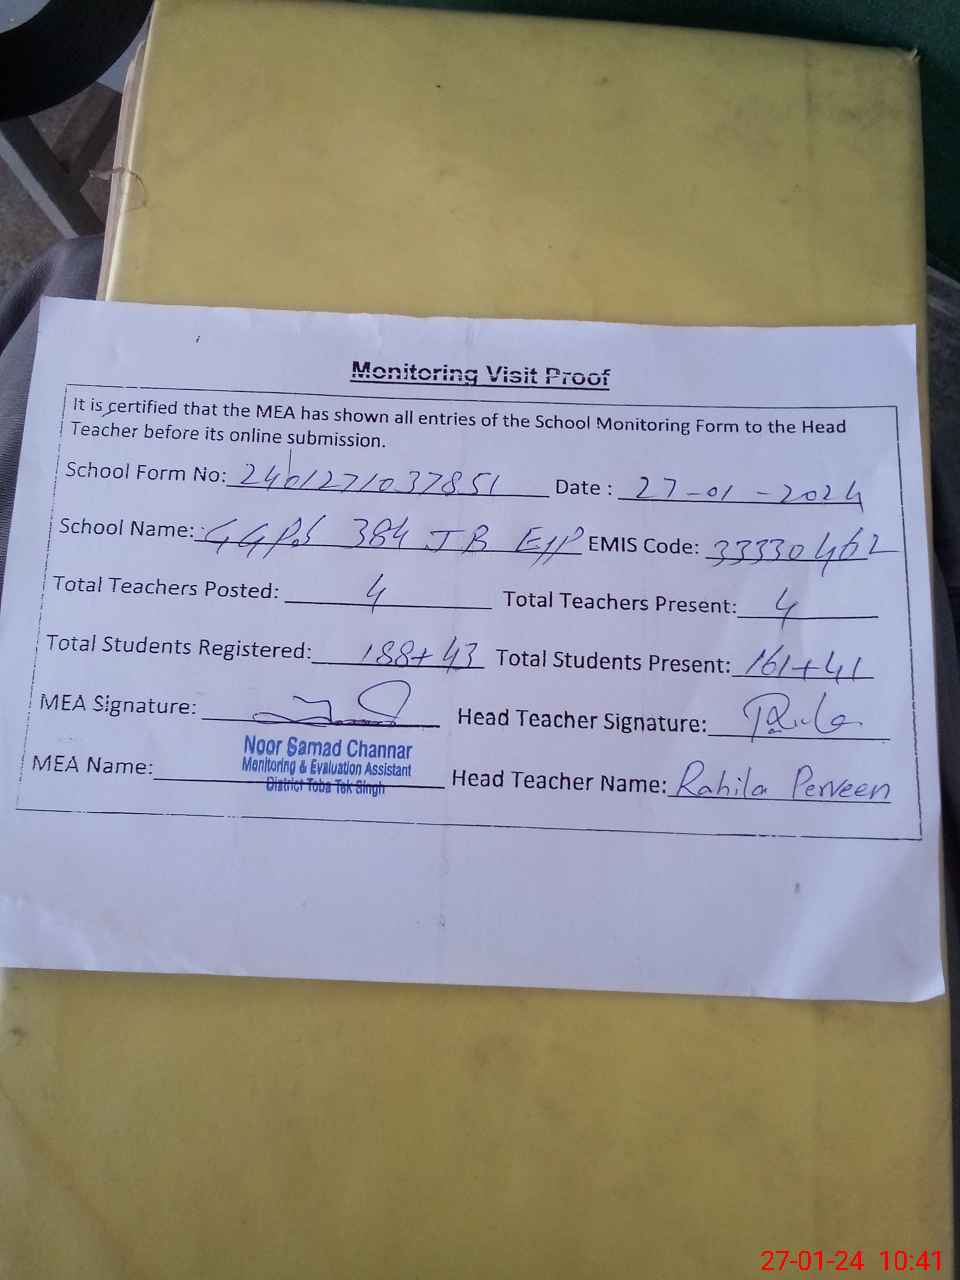 Monitoring Visit Proof
It is certified that the MEA has shown all entries of the School Monitoring Form to the Head
Teacher before its online submission.
School Form No: 2401271037851 Date : 27-01-2024
School Name: GGPS 384 JB EJP EMIS Code: 33330462
Total Teachers Posted: 4 Total Teachers Present: 4
Total Students Registered: 188+43 Total Students Present: 161+41
MEA Signature: Head Teacher Signature:
Noor Samad Channar
Monitoring & Evaluation Assistant
District Toba Tek Singh
MEA Name: Head Teacher Name: Rahila Perveen
27-01-24 10:41